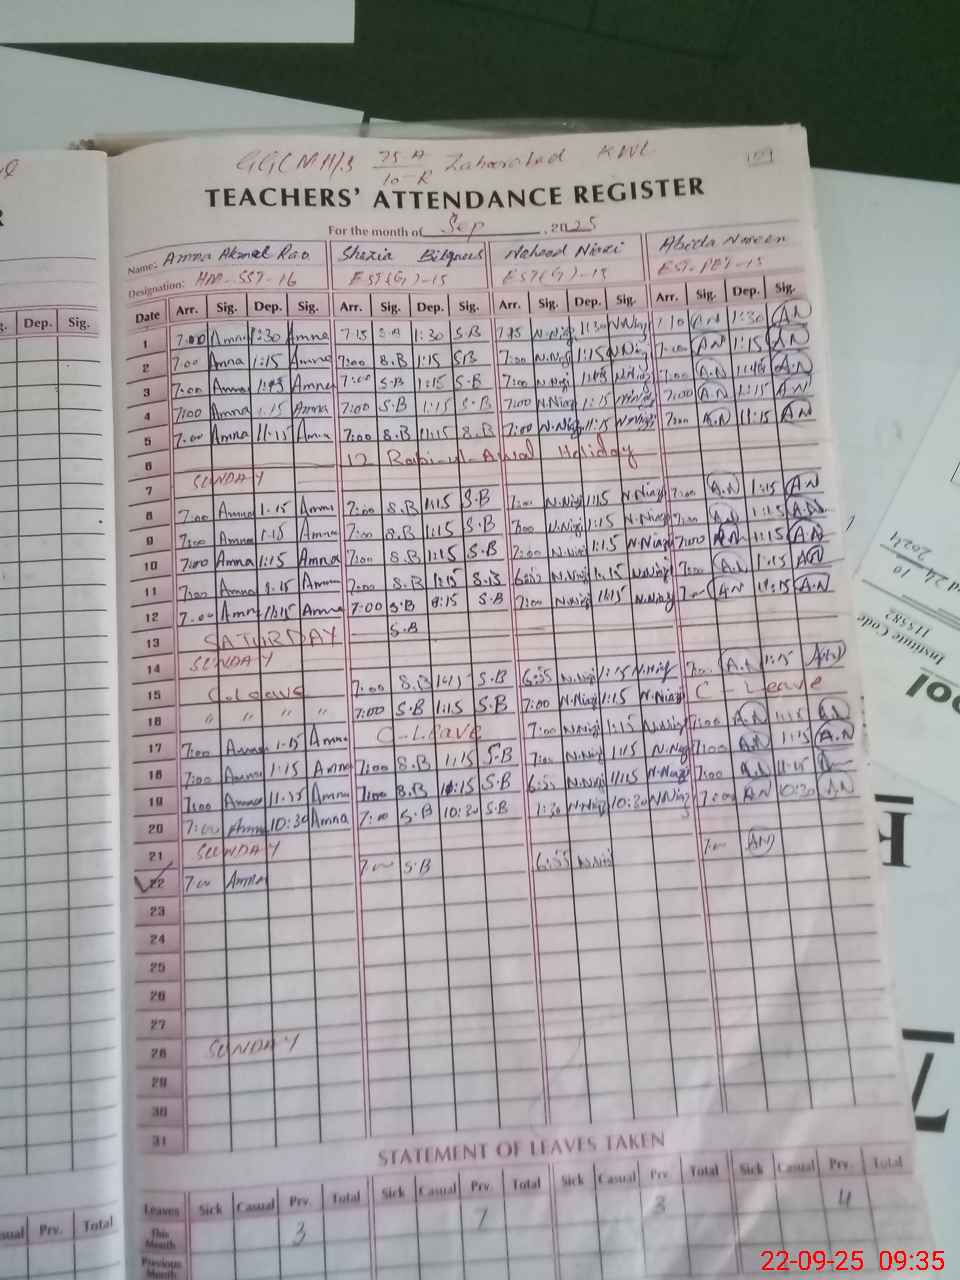 GG(MH)S 75-A/10-R Zahoorabad KWL
109
TEACHERS' ATTENDANCE REGISTER
For the month of Sep, 2025
Name: Amna Akmal Rao Shazia Bilquees Naheed Niazi Abida Noreen
Designation: HM-SST-16 EST(G)-15 EST(G)-15 EST-PET-15
Date Arr. Sig. Dep. Sig. Arr. Sig. Dep. Sig. Arr. Sig. Dep. Sig. Arr. Sig. Dep. Sig.
1 7:00 Amna 1:30 Amna 7:15 S.B 1:30 S.B 7:15 N.Niazi 1:30 N.Niazi 7:10 A.N 1:30 A.N
2 7:00 Amna 1:15 Amna 7:00 S.B 1:15 S.B 7:00 N.Niazi 1:15 N.Niazi 7:00 A.N 1:15 A.N
3 7:00 Amna 1:45 Amna 7:00 S.B 1:15 S.B 7:00 N.Niazi 1:45 N.Niazi 7:00 A.N 1:45 A.N
4 7:00 Amna 1:15 Amna 7:00 S.B 1:15 S.B 7:00 N.Niazi 1:15 N.Niazi 7:00 A.N 1:15 A.N
5 7:00 Amna 11:15 Amna 7:00 S.B 11:15 S.B 7:00 N.Niazi 11:15 N.Niazi 7:00 A.N 11:15 A.N
6 12 Rabi-ul-Awal Holiday
7 SUNDAY
8 7:00 Amna 1:15 Amna 7:00 S.B 1:15 S.B 7:00 N.Niazi 1:15 N.Niazi 7:00 A.N 1:15 A.N
9 7:00 Amna 1:15 Amna 7:00 S.B 1:15 S.B 7:00 N.Niazi 1:15 N.Niazi 7:00 A.N 1:15 A.N
10 7:00 Amna 1:15 Amna 7:00 S.B 1:15 S.B 7:00 N.Niazi 1:15 N.Niazi 7:00 A.N 1:15 A.N
11 7:00 Amna 1:15 Amna 7:00 S.B 1:15 S.B 6:55 N.Niazi 1:15 N.Niazi 7:00 A.N 1:15 A.N
12 7:00 Amna 11:15 Amna 7:00 S.B 11:15 S.B 7:00 N.Niazi 11:15 N.Niazi 7:00 A.N 11:15 A.N
13 SATURDAY S.B
14 SUNDAY
15 C-Leave 7:00 S.B 1:15 S.B 6:55 N.Niazi 1:15 N.Niazi 7:00 A.N 1:15 A.N
16 " " " " 7:00 S.B 1:15 S.B 7:00 N.Niazi 1:15 N.Niazi C-Leave
17 7:00 Amna 1:15 Amna C-Leave 7:00 N.Niazi 1:15 N.Niazi 7:00 A.N 1:15 A.N
18 7:00 Amna 1:15 Amna 7:00 S.B 1:15 S.B 7:00 N.Niazi 1:15 N.Niazi 7:00 A.N 1:15 A.N
19 7:00 Amna 11:15 Amna 7:00 S.B 11:15 S.B 6:55 N.Niazi 11:15 N.Niazi 7:00 A.N 11:15
20 7:00 Amna 10:30 Amna 7:00 S.B 10:30 S.B 7:30 N.Niazi 10:30 N.Niazi 7:00 A.N 10:30 A.N
21 SUNDAY
22 7:00 Amna 7:00 S.B 6:55 N.Niazi 7:00 A.N
23
24
25
26
27
28 SUNDAY
29
30
31
STATEMENT OF LEAVES TAKEN
Leaves Sick Casual Prv. Total Sick Casual Prv. Total Sick Casual Prv. Total Sick Casual Prv. Total
This Month 3 7 3 4
Previous Month
Dep. Sig.
Prv. Total
Institute Code
115582
2024
22-09-25 09:35